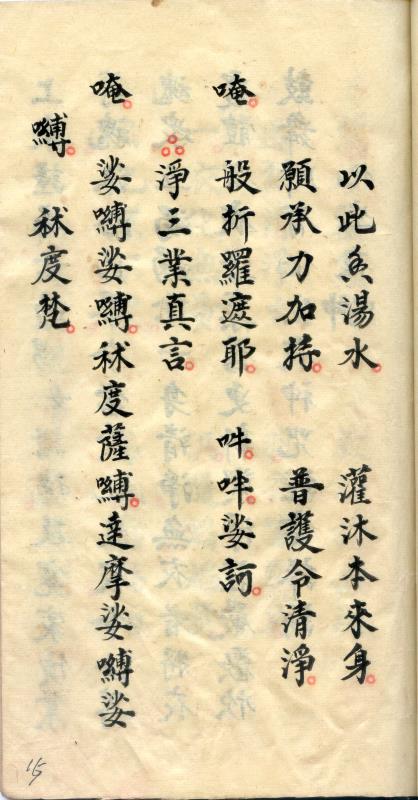 以此香湯水。灌沐本來身。
願承力加持。普護令清淨。
唵。般折羅遮耶。吽吽娑訶。
淨三業真言。
唵。娑嚩娑嚩。秫度薩嚩。達摩娑嚩娑
嚩。秫度梵。
15